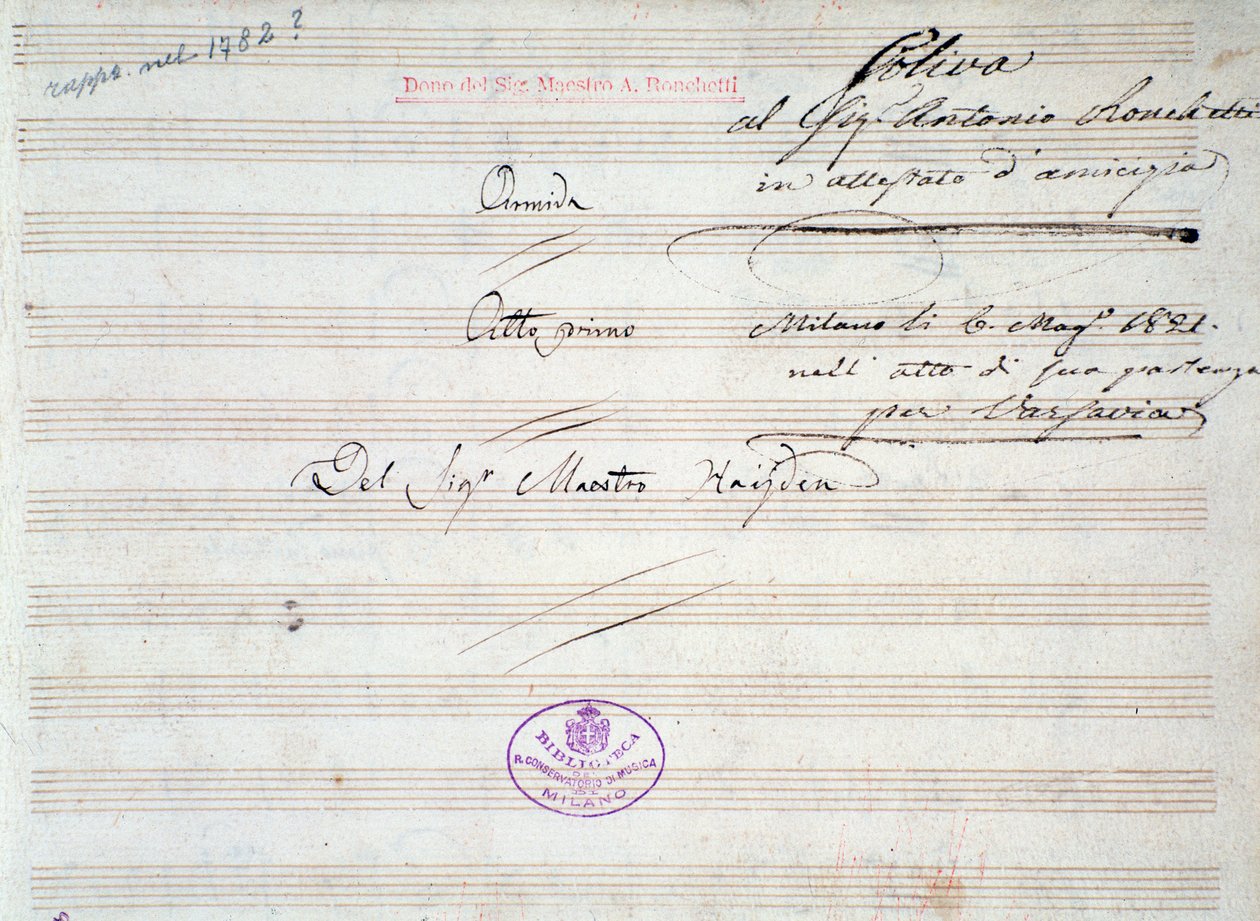 rappr. nel 1782?
Dono del Sig. Maestro A. Ronchetti
Soliva
al Sigr. Antonio Ronchetti
in attestato d'amicizia
Armida
Atto primo
Milano li 6. Mago. 1821.
nell' atto di sua partenza
per Varsavia
Del Sigr Maestro Haijden
BIBLIOTECA
R. CONSERVATORIO DI MUSICA
DI
MILANO